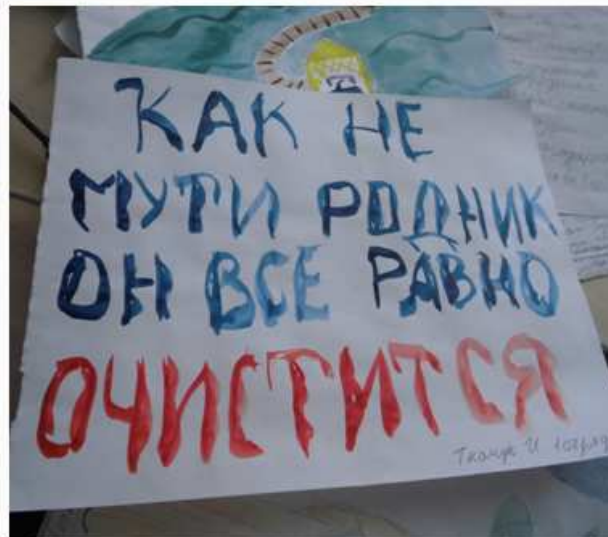 КАК НЕ
МУТИ РОДНИК
ОН ВСЕ РАВНО
ОЧИСТИТСЯ
Ткачук И 1 отряд